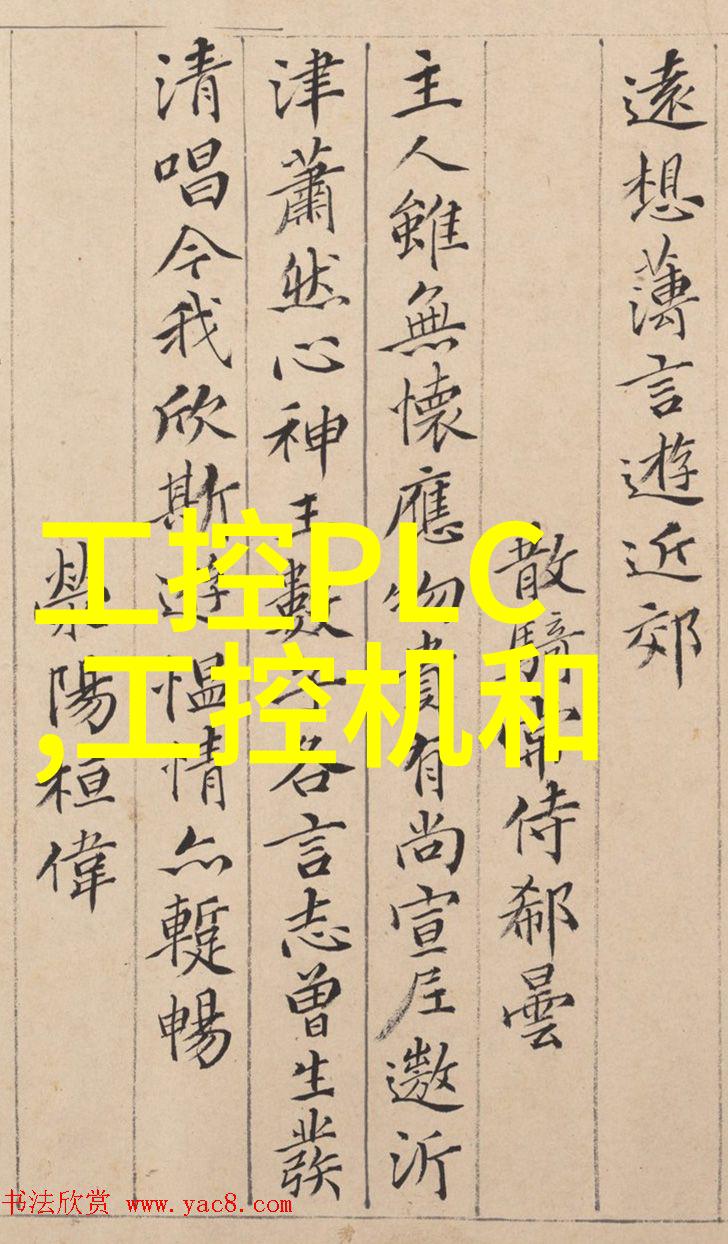 遠想蕩言遊近郊
散騎常侍郗曇
主人雖無懷應物貴有尚宣尼遨沂
津蕭然心神王數子各言志曾生發
清唱今我欣斯遊慍情亦蹔暢
滎陽桓偉
工控PLC
,工控机和
书法欣赏 www.yac8.com